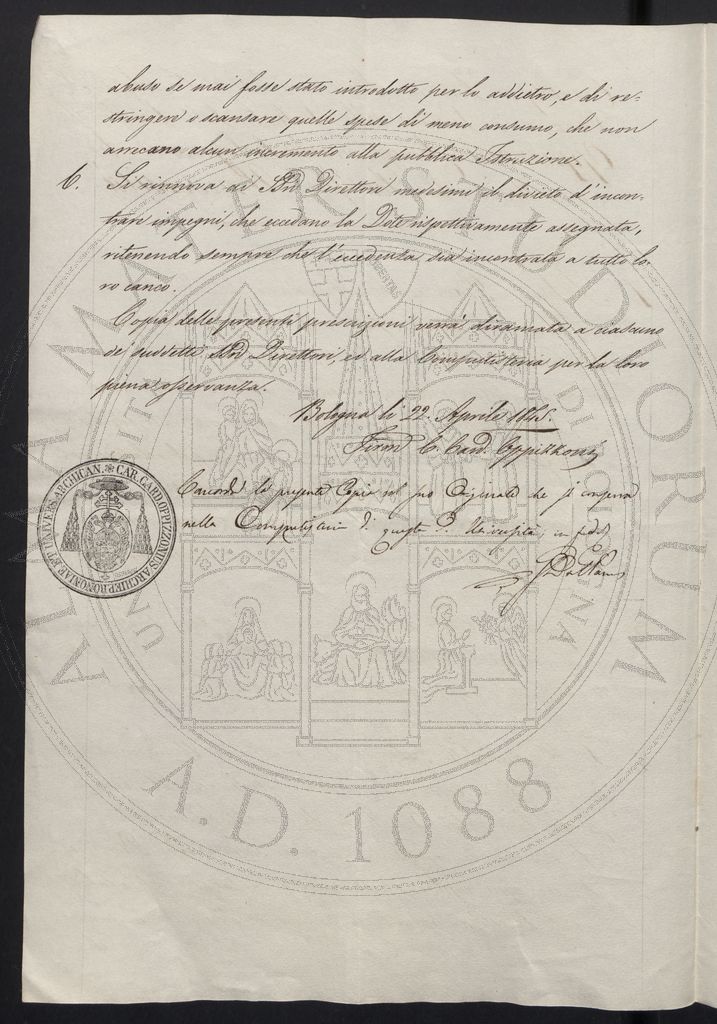 abuso se mai fosse stato introdotto per lo addietro, e di re-
stringere o scansare quelle spese di meno consumo, che non
arrecano alcun incremento alla pubblica Istruzione.
6. Si rinnova ai Direttori medesimi il divieto d'incon-
trare impegni, che eccedano la Dote rispettivamente assegnata,
ritenendo sempre che l'eccedenza sia incontrata a tutto lo-
ro carico.
Copia delle presenti prescrizioni verrà diramata a ciascuno
de' suddetti Direttori, ed alla Computisteria per la loro
piena osservanza.
Bologna li 22. Aprile 1845
Firm C. Card. Oppizzoni
Concorda la presente Copia col suo Originale che si conserva
nella Computisteria di questa P. Università, in fede
CAR. CARD. OPPIZZONUS ARCHIEP. BONONIAE ET UNIVERS. ARCHICAN.
ALMA MATER STUDIORUM
A.D. 1088